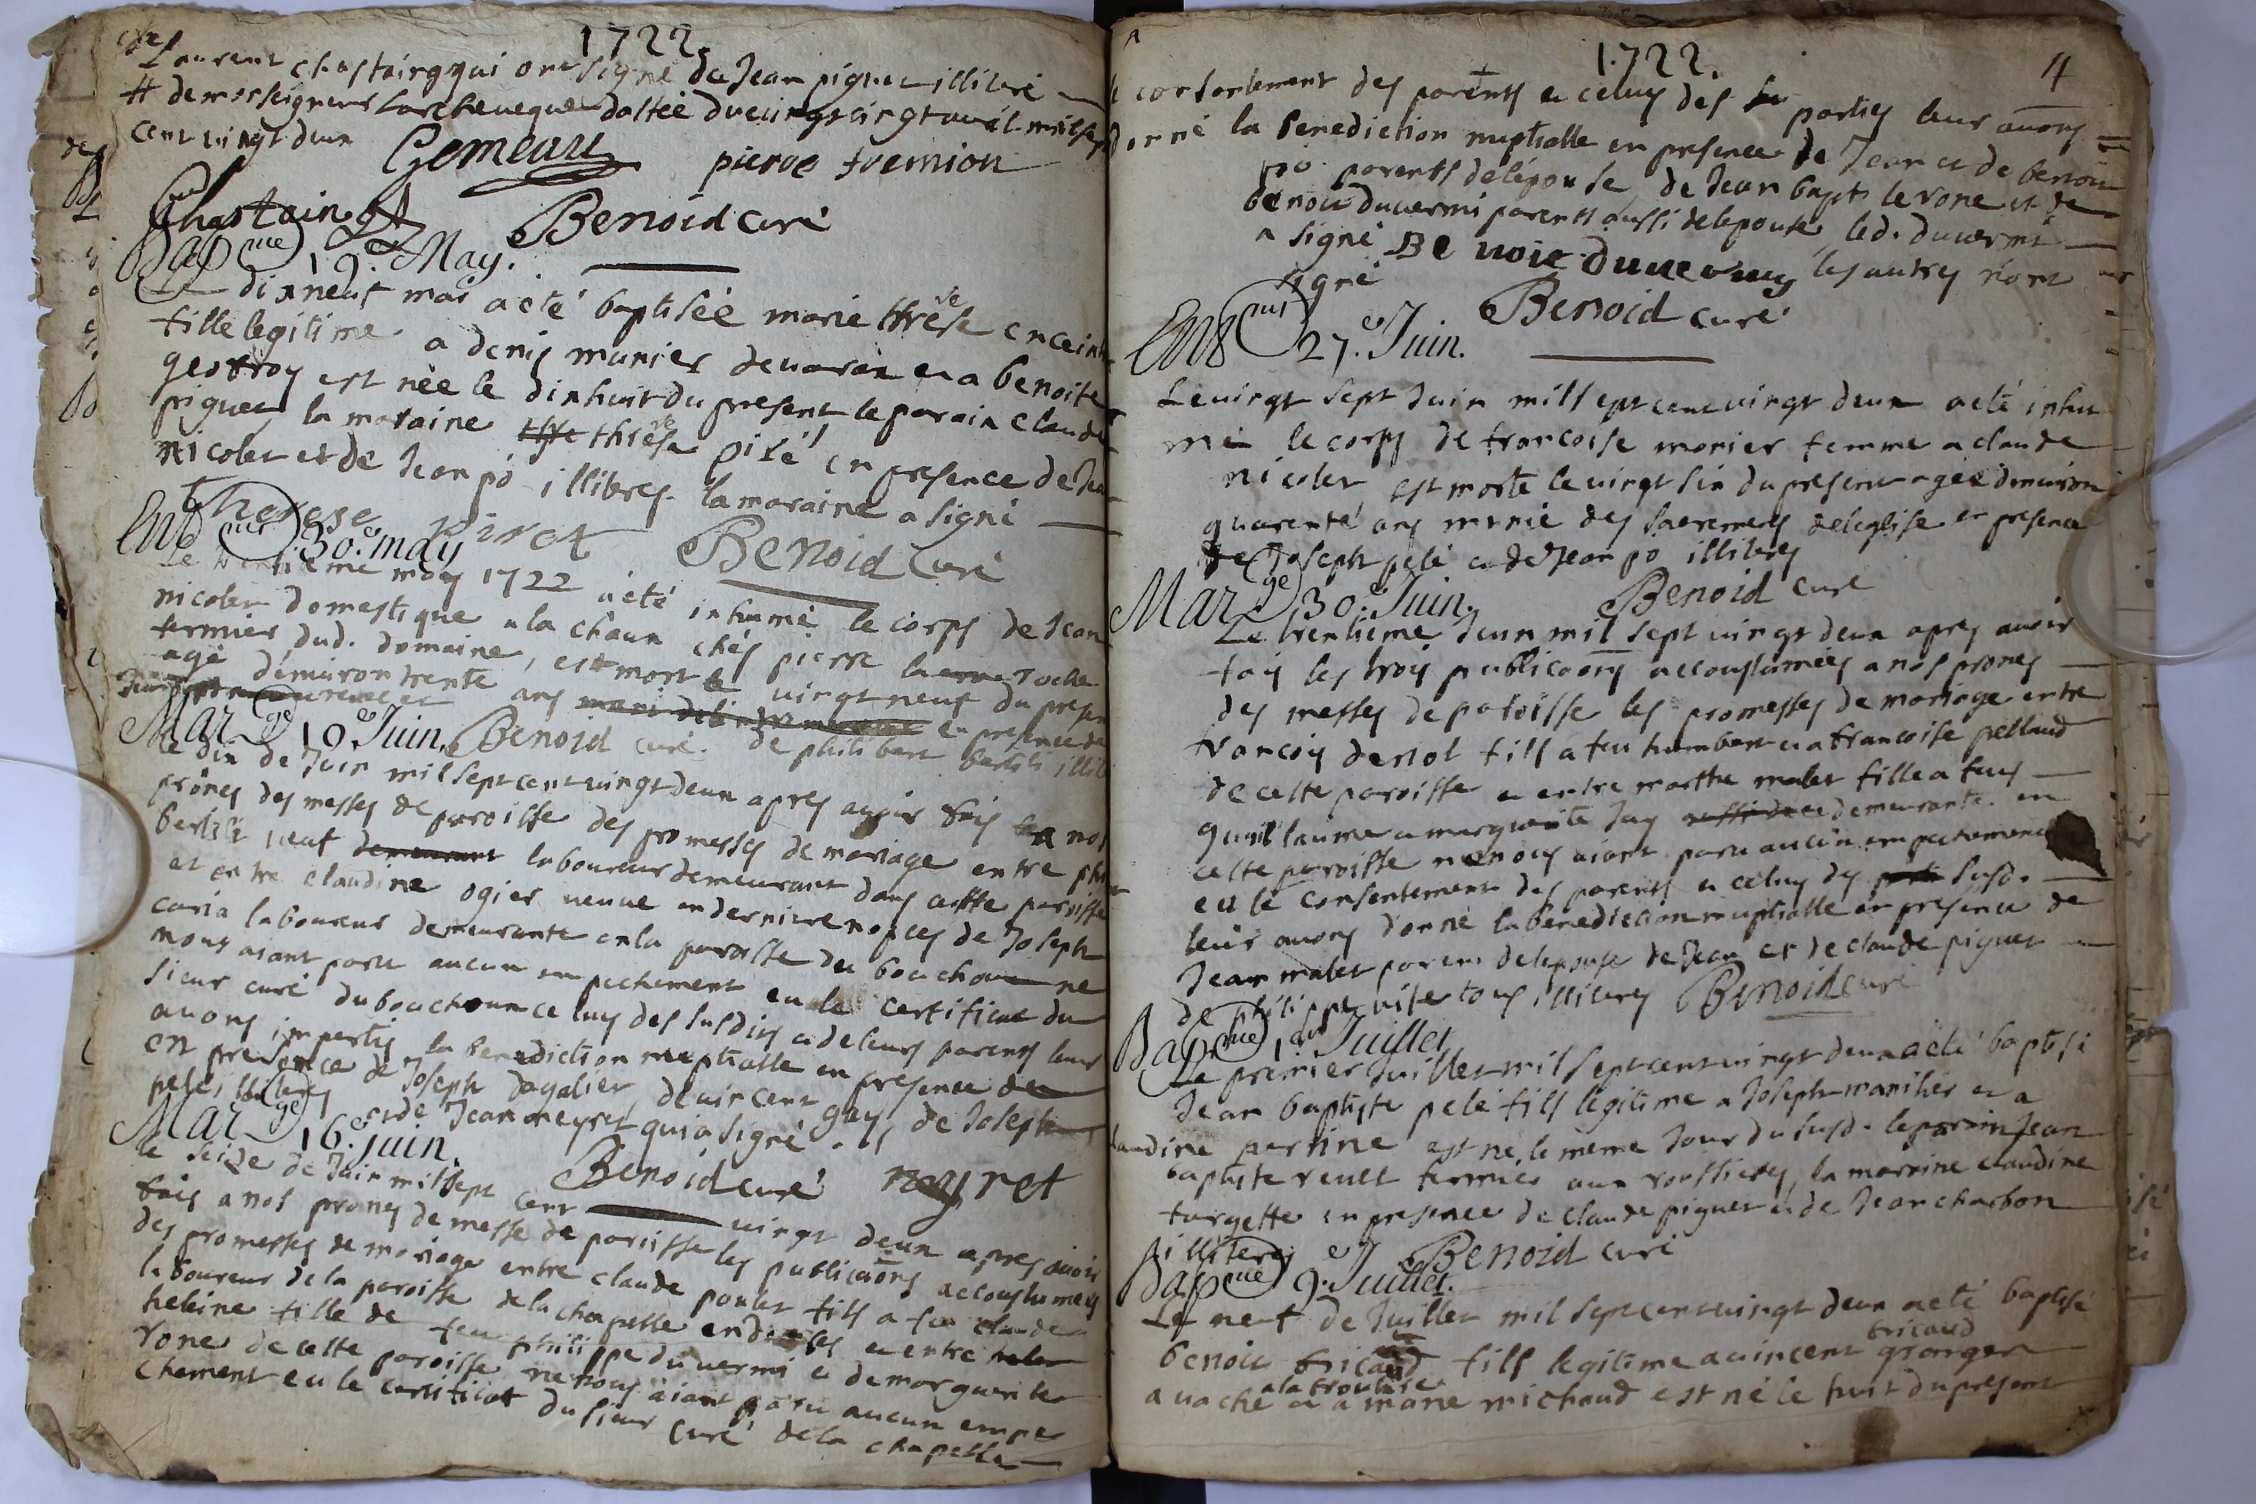 1722.
Laurent chastaing qui ont signé de Jean piguet illiteré
# de monseigneur Larcheveque dattée du vingt cinq avril mil sept
cent vingt deux Gomeau pierre tremion
Chastain Benoid curé
Bapme 19. May.
Le dix neuf mai a eté baptisée marie threse enceinte
fille legitime a denis munier de et a benoite
geoffroy est née le dixhuit du present, le parain claude
piguet, la maraine threse piré en presence de Jean
nicolet et de Jean pó illiteres la maraine a signé
therese pirot Benoid curé
Ent mt 30.e may
Le trentieme may 1722 a eté inhumé le corps de Jean
nicolet domestique a la chaux chés pierre laroche
fermier dud. domaine, est mort le vingt neuf du present
agé denviron trente ans en presence de
de philibert illit
Benoid curé.
Mar ge 10.e Juin.
Le dix de Juin mil sept cent vingt deux apres avoir fais a nos
prônes des messes de paroisse des promesses de mariage entre
veuf laboureur demeurant dans cette paroisse
et entre claudine ogier veuve en derniere nopces de Joseph
caria laboureur demeurante en la paroisse du bouchoux ne
nous aiant paru aucun empechement eu le certificat du
sieur curé du bouchoux celuy des susdits et de leurs parents leur
avons imparties la benediction nuptialle en presence de
en presence de Joseph dagalier, de vincent gay, de Joseph
pelé, illiteres et de Jean meyret qui a signé
Benoid curé meyret
Mar ge 16.e Juin.
le seize de Juin mil sept cent vingt deux apres avoir
fais a nos prones de messe de paroisse les publicãons accoustumées
des promesses de mariage entre claude poulet fils a feu claude
laboureur de la paroisse de la chapelle en et entre
heleine fille de feu philippe duvermi et de marguerite
rone de cette paroisse ne nous aiant paru aucun empe
chement eu le certificat du sieur curé de la chapelle
1722. 4
consentement des parents et celuy des parties leur avons
donné la benediction nuptialle en presence de Jean et de benoit
pó parents de lépouse, de Jean bapt. le rone et de
benoit duvermi parents aussi de lepouse, led. duvermi
a signé Benoit duvermy les autres n'ont
signé Benoid curé
Ent mt 27.e Juin.
Le vingt sept Juin mil sept cent vingt deux a eté inhu
mé le corps de francoise monier femme a claude
nicolet, est morte le vingt six du present agée denviron
quarente ans munie des sacremens de leglise en presence
de Joseph pelé et de Jean pó illiteres
Benoid curé
Mar ge 30.e Juin.
Le trentieme Juin mil sept vingt deux apres avoir
fais les trois publicãons accoustumées a nos prones
des messes de paroisse les promesses de mariage entre
francois fils a feu humbert et a francoise pelland
de cette paroisse et entre marthe malet fille a feus
guillaume et marguerite Jay demeurante en
cette paroisse ne nous aiant paru aucun empechement
eu le consentement des parents et celuy des susd.
leur avons donné la benediction nuptialle en presence de
Jean malet parent de lepouse de Jean et de claude piguet
de philippe tous illiteres Benoid curé
Bapme 1.er Juillet
Le premier Juillet mil sept cent vingt deux a eté baptisé
Jean baptiste pelé fils legitime a Joseph et a
claudine perrine est né le meme Jour du susd. le parain Jean
baptiste reult fermier aux, la marraine claudine
targette en presence de claude piguet et de Jean charbon
illiteres Benoid curé
Bapme 9.e Juillet.
Le neuf de Juillet mil sept cent vingt deux a eté baptisé
benoit tricaud fils legitime a vincent tricaud granger
a vaché a la troullie et a marie michaud est né le huit du present